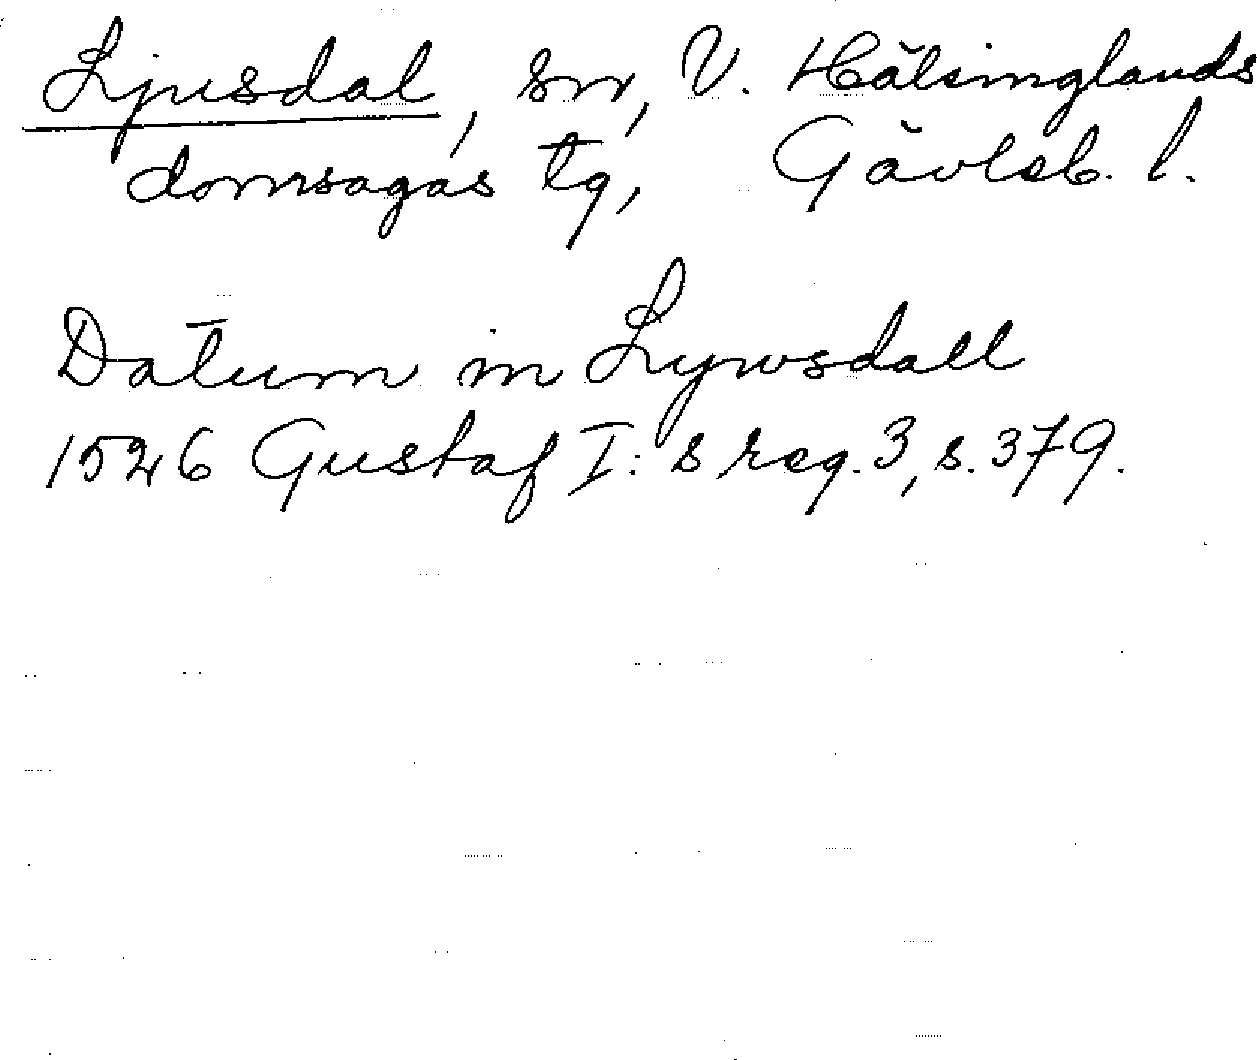 Ljusdal, sn, V. Hälsinglands
domsagas tg, Gävleb. l.
Datum in Lywsdall
1526 Gustaf I: s reg. 3, s. 379.